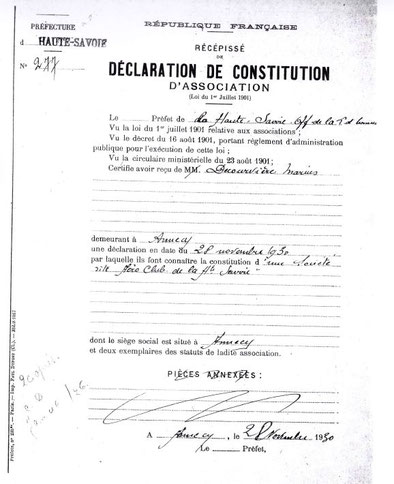 PRÉFECTURE
d HAUTE-SAVOIE
N° 277
RÉPUBLIQUE FRANÇAISE
RÉCÉPISSÉ
DE
DÉCLARATION DE CONSTITUTION
D'ASSOCIATION
(Loi du 1er Juillet 1901)
Le Préfet de la Haute-Savoie Off. de la
Vu la loi du 1er juillet 1901 relative aux associations ;
Vu le décret du 16 août 1901, portant règlement d'administration
publique pour l'exécution de cette loi ;
Vu la circulaire ministérielle du 23 août 1901 ;
Certifie avoir reçu de MM. Marius
demeurant à Annecy
une déclaration en date du 28 novembre 1930
par laquelle ils font connaître la constitution d'une Société
dite Aéro Club de la Hte Savoie
dont le siège social est situé à Annecy
et deux exemplaires des statuts de ladite association.
PIÈCES ANNEXÉES :
A Annecy, le 28 Novembre 1930
Le Préfet,